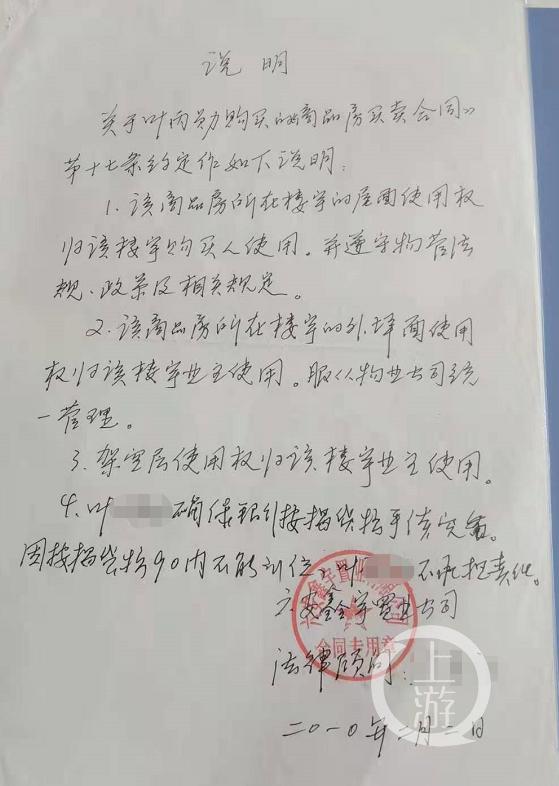 说明
关于叶丙员购买的《商品房买卖合同》
第十七条约定作如下说明：
1.该商品房所在楼宇的屋面使用权
归该楼宇购买人使用。并遵守物管法
规、政策及相关规定。
2.该商品房所在楼宇的外墙面使用
权归该楼宇业主使用。服从物业公司统
一管理。
3.架空层使用权归该楼宇业主使用。
4.叶 确保银行按揭贷款手续完备。
因按揭贷款90内不能到位，叶 不承担责任。
六安鑫宇置业公司
合同专用章
法律顾问：
二〇一〇年二月二日
上游